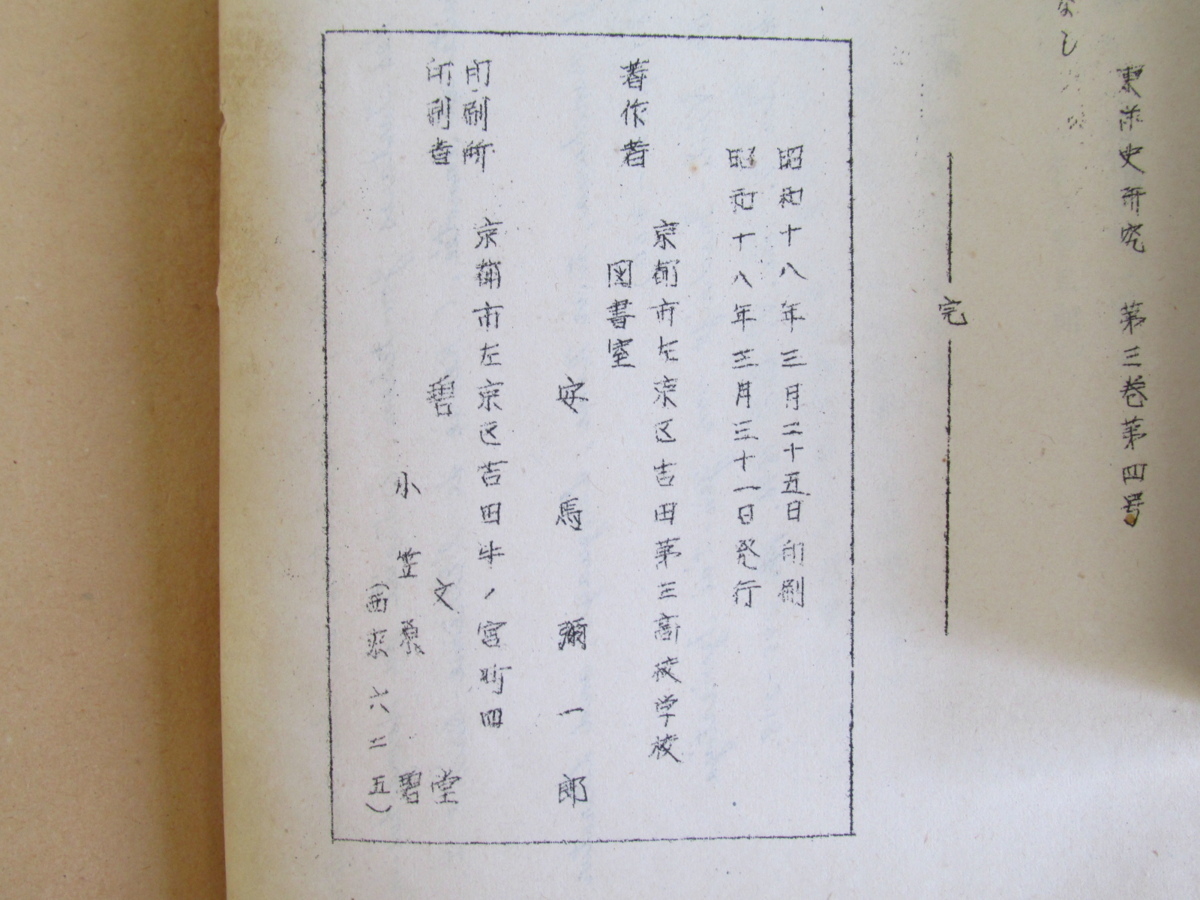 東洋史研究 第三巻第四号
なし
完
昭和十八年三月二十五日印刷
昭和十八年三月三十一日発行
京都市左京区吉田第三高校学校
著作者
図書室
安馬彌一郎
京都市左京区吉田牛ノ宮町四
印刷所
文堂
印刷者
小笠原
六二五)